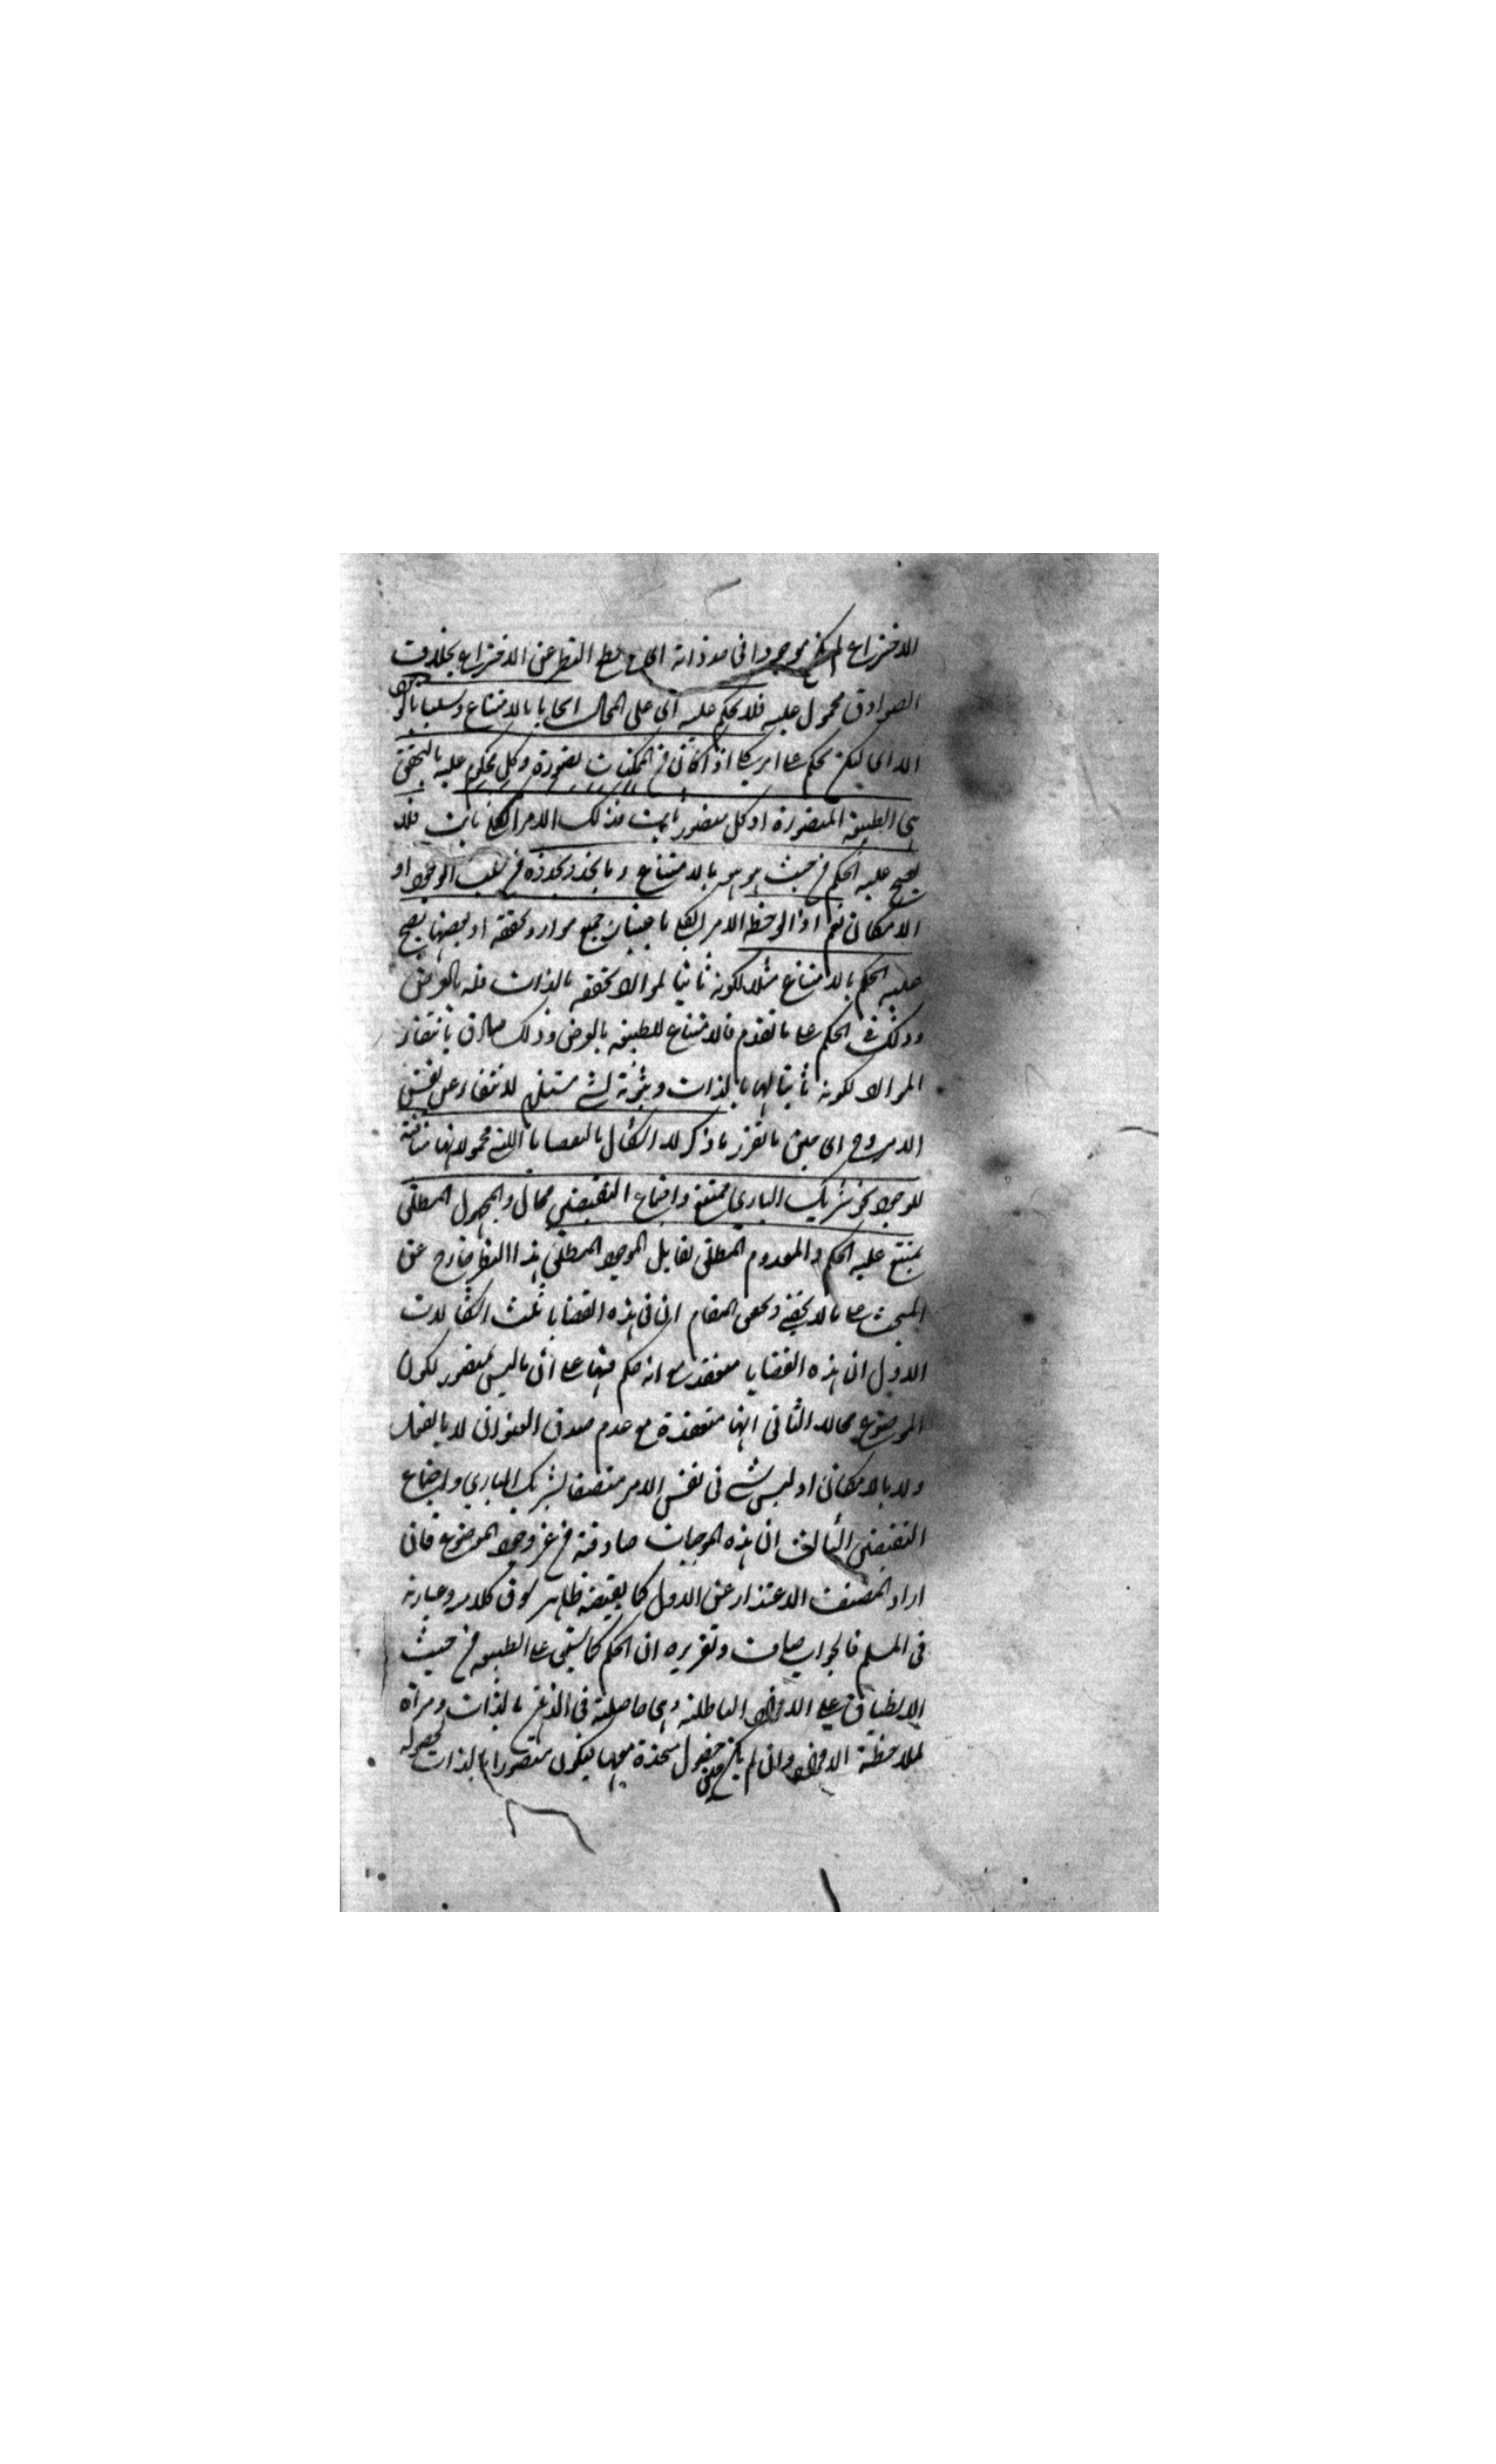 الاختراع لم يكن موجودا في حد ذاته اى مع قطع النظر عن الاختراع بخلاف
الصوادق محمول عليه فلا يحكم عليه اى على المحال ايجابا بالامتناع وسلبا بالوجود
الا اى لكن بحكم على امر كلى اذا كان من الممكنات تصوره وكل محكوم عليه بالتحقيق
هى الطبيعة المتصورة وكل متصور ثابت فذلك الامر الكلى ثابت فلا
يصح عليه الحكم من حيث هو هو بالامتناع وما يحذو حذوه من سلب الوجود او
الامكان نعم اذا لوحظ الامر الكلى باعتبار جميع موارد تحققه او بعضها يصح
عليه الحكم بالامتناع مثلا لكونه ثابتا لموارد تحققه بالذات فله بالعرض
وذلك في الحكم على ما تقدم فالامتناع للطبيعة بالعرض وذلك صادق بانتفاء
الموارد لكونه ثابتا لها بالذات وثبوته لشئ مستلزم لانتفاء عن نفس
الامر وح اى حين ما تقرر ما ذكر لا اشكال بالقضايا التى محمولاتها منافية
للوجود نحو شريك البارى ممتنع واجتماع النقيضين محال والمجهول المطلق
يمتنع عليه الحكم والمعدوم المطلق يقابل الموجود المطلق هذا النظر خارج عن
المبحث على ما لا يخفى وتحقيق المقام ان في هذه القضايا ثلث اشكالات
الاول ان هذه القضايا منعقدة مع انه حكم فيها على ان ما ليس بمتصور لكون
الموضوع محالا الثانى انها منعقدة مع عدم صدق العنوان لا بالفعل
ولا بالامكان اذ ليس شئ في نفس الامر متصفا بشريك البارى واجتماع
النقيضين الثالث ان هذه الموجبات صادقة من غير وجود الموضوع فان
اراد المصنف الاعتذار عن الاول كما يقتضيه ظاهر سوق كلامه وعبارته
في المسلم فالجواب صاف وتقريره ان الحكم كما سبق على الطبيعة من حيث
الانطباق على الافراد الباطلة وهى حاصلة في الذهن بالذات ومرآة
لملاحظة الافراد وان لم يكن حصول متحدة معها فيكون متصورا بالذات لحصوله